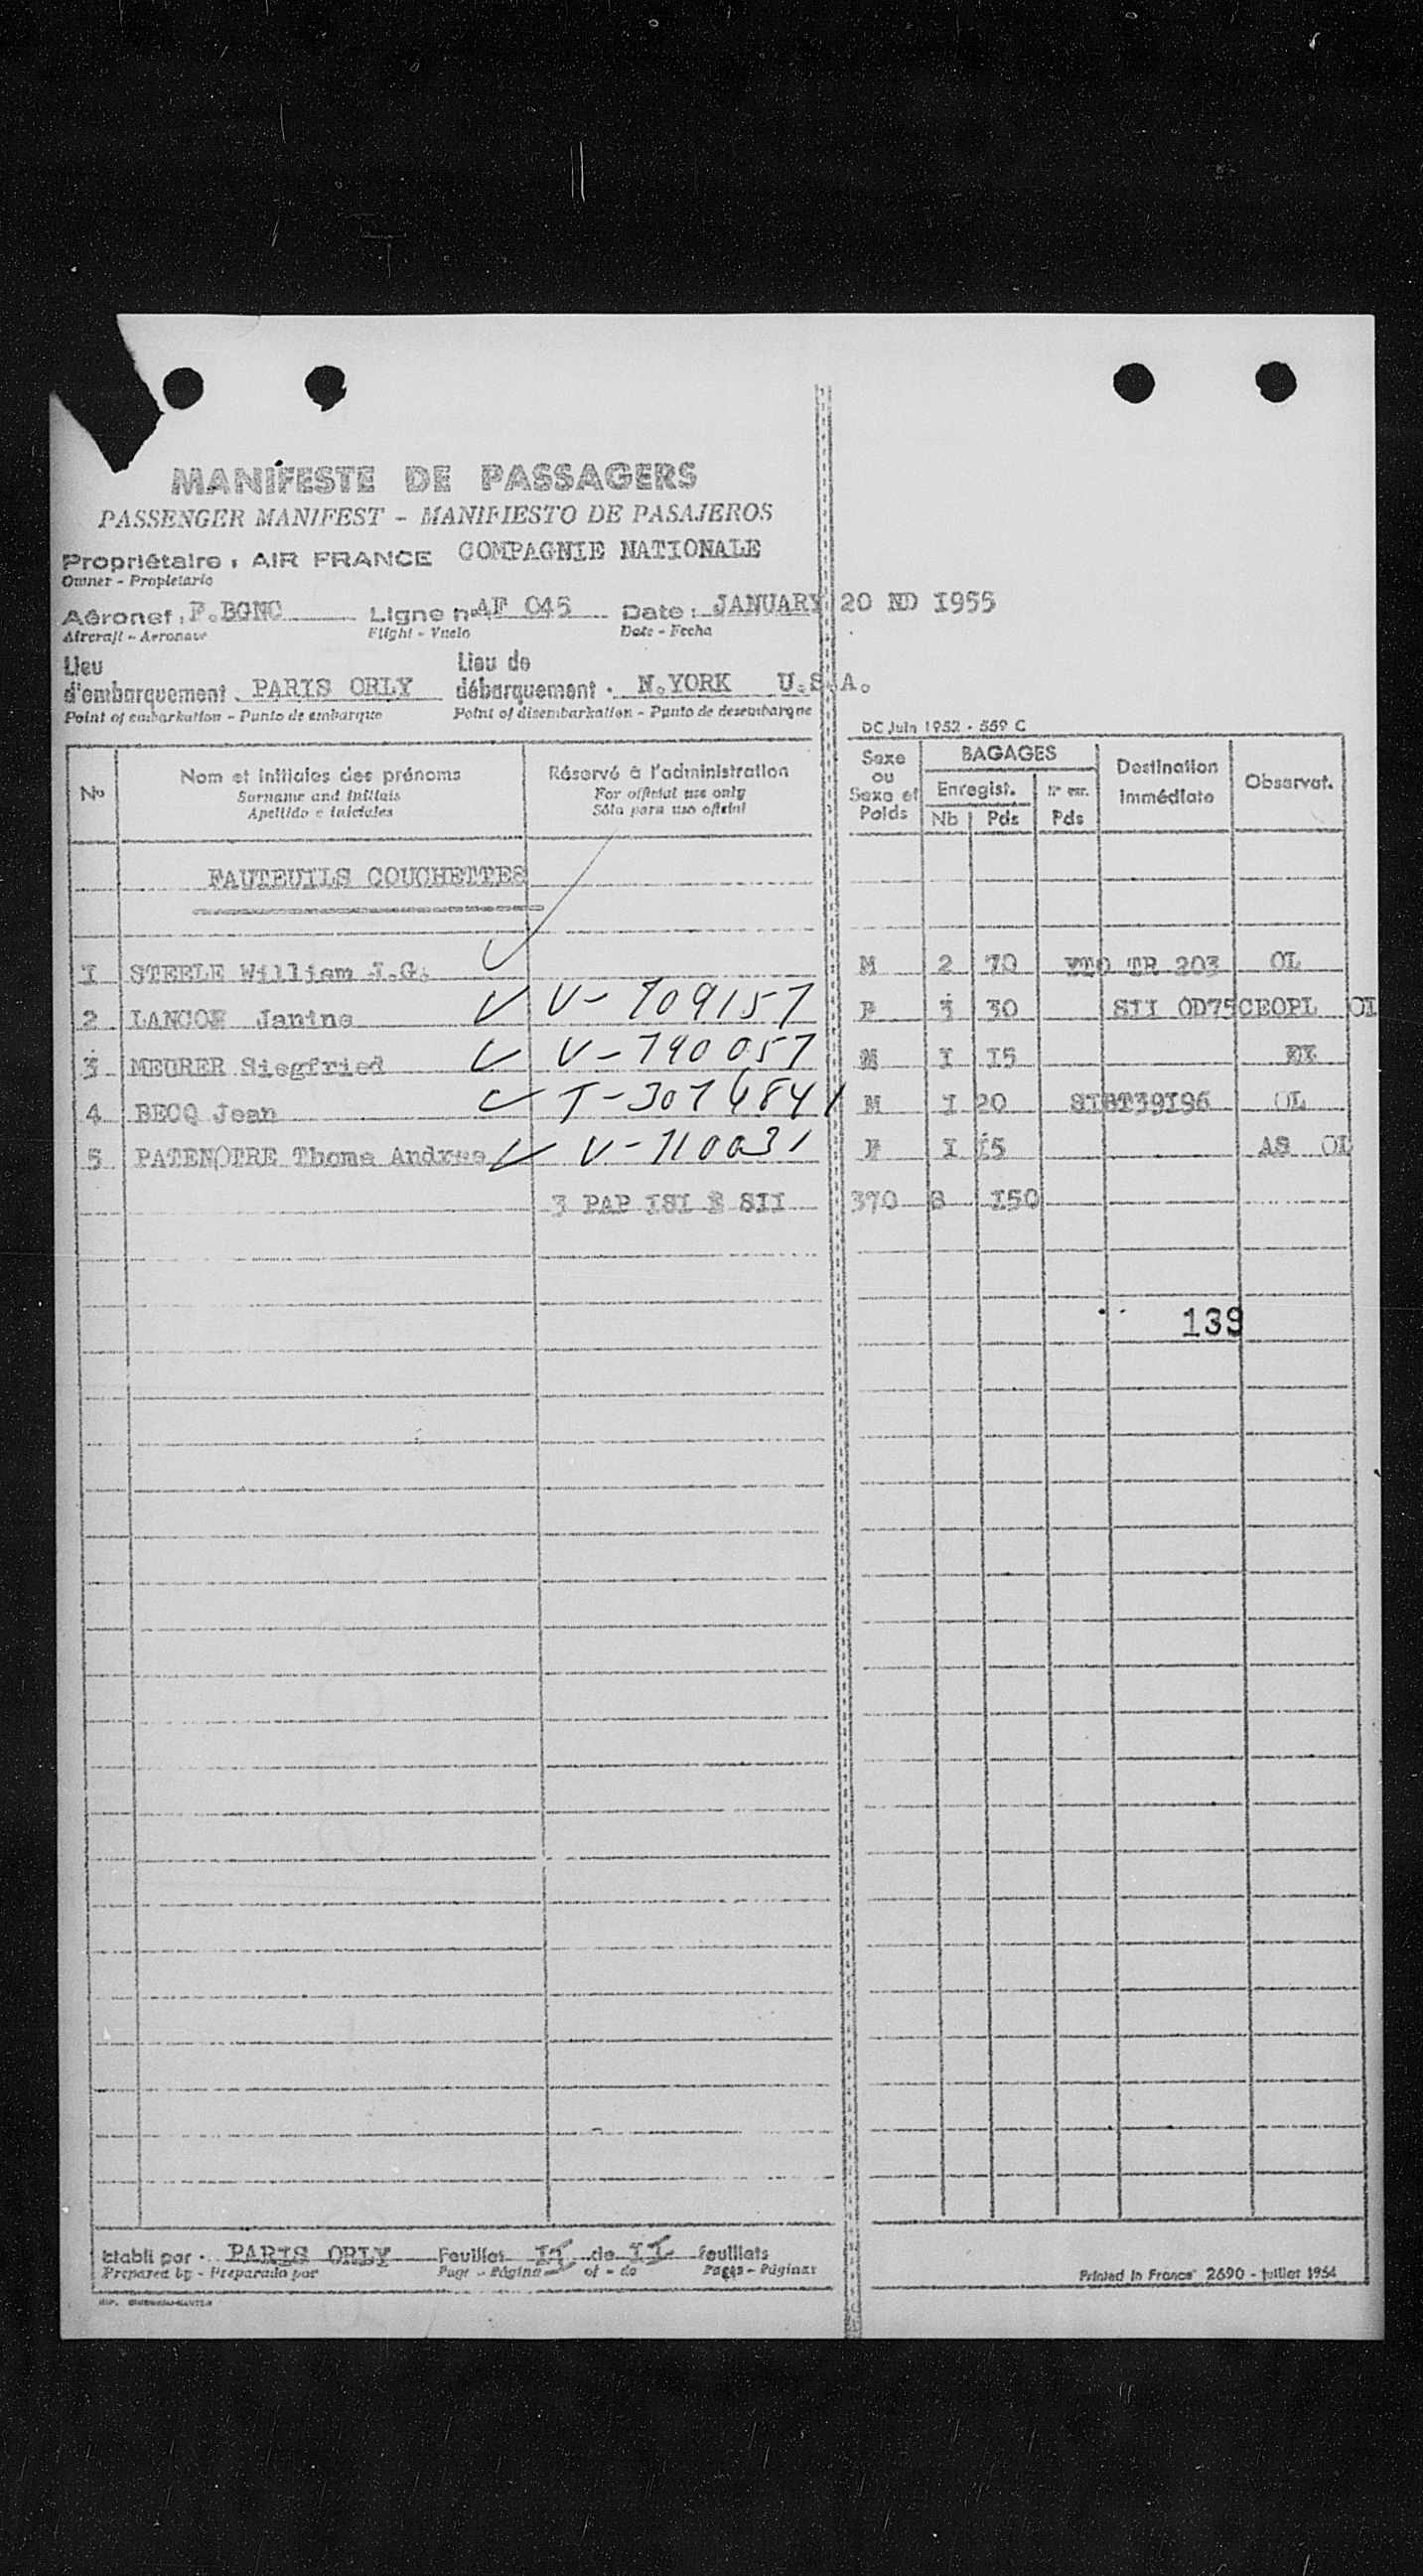 MANIFESTE DE PASSAGERS
PASSENGER MANIFEST - MANIFIESTO DE PASAJEROS
Propriétaire : AIR FRANCE COMPAGNIE NATIONALE
Owner - Propietario
Aéronef : F.BGNC Ligne n° AF 045 Date : JANUARY 20 ND 1955
Aircraft - Aeronave Flight - Vuelo Date - Fecha
Lieu d'embarquement . PARIS ORLY Lieu de débarquement . N.YORK U.S.A.
Point of embarkation - Punto de embarque Point of disembarkation - Punto de desembarque
DC Juin 1952 - 559 C
N° Nom et initiales des prénoms Réservé à l'administration Sexe ou Sexe et Poids BAGAGES Destination immédiate Observat.
Surname and initials For official use only Enregist. N° enr.
Apellido e iniciales Sóla para uso oficial Nb Pds Pds
FAUTEUILS COUCHETTES
I STEELE William J.G. M 2 70 TR 203 OL
2 LANCOE Janine V-709157 F 3 30 SII OD75CEOPL OL
3 MEURER Siegfried V-790057 M I I5
4 BECQ Jean T-3076841 M I 20 OL
5 PATENOTRE Thome Andree V-710031 F I I5 AS OL
3 PAP ISI E SII 370 8 I50
139
Etabli par . PARIS ORLY Feuillet de II feuillets
Prepared by - Preparado por Page - Página of - de Pages - Páginas
Printed in France 2690 - juillet 1954